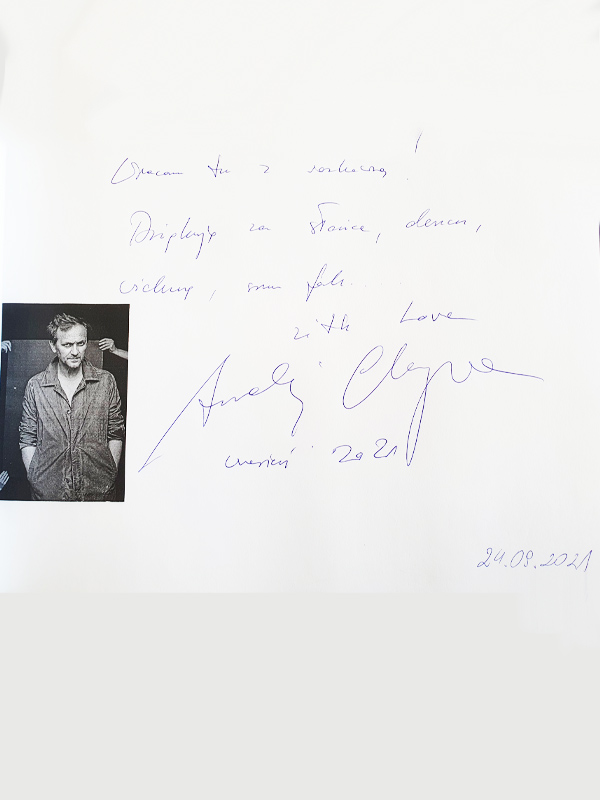 Wracam tu z rozkoszą!
Dziękuję za słońce, deszcz,
wichurę, szum fal...
with Love
Andrzej Chyra
wrzesień 2021
24.09.2021